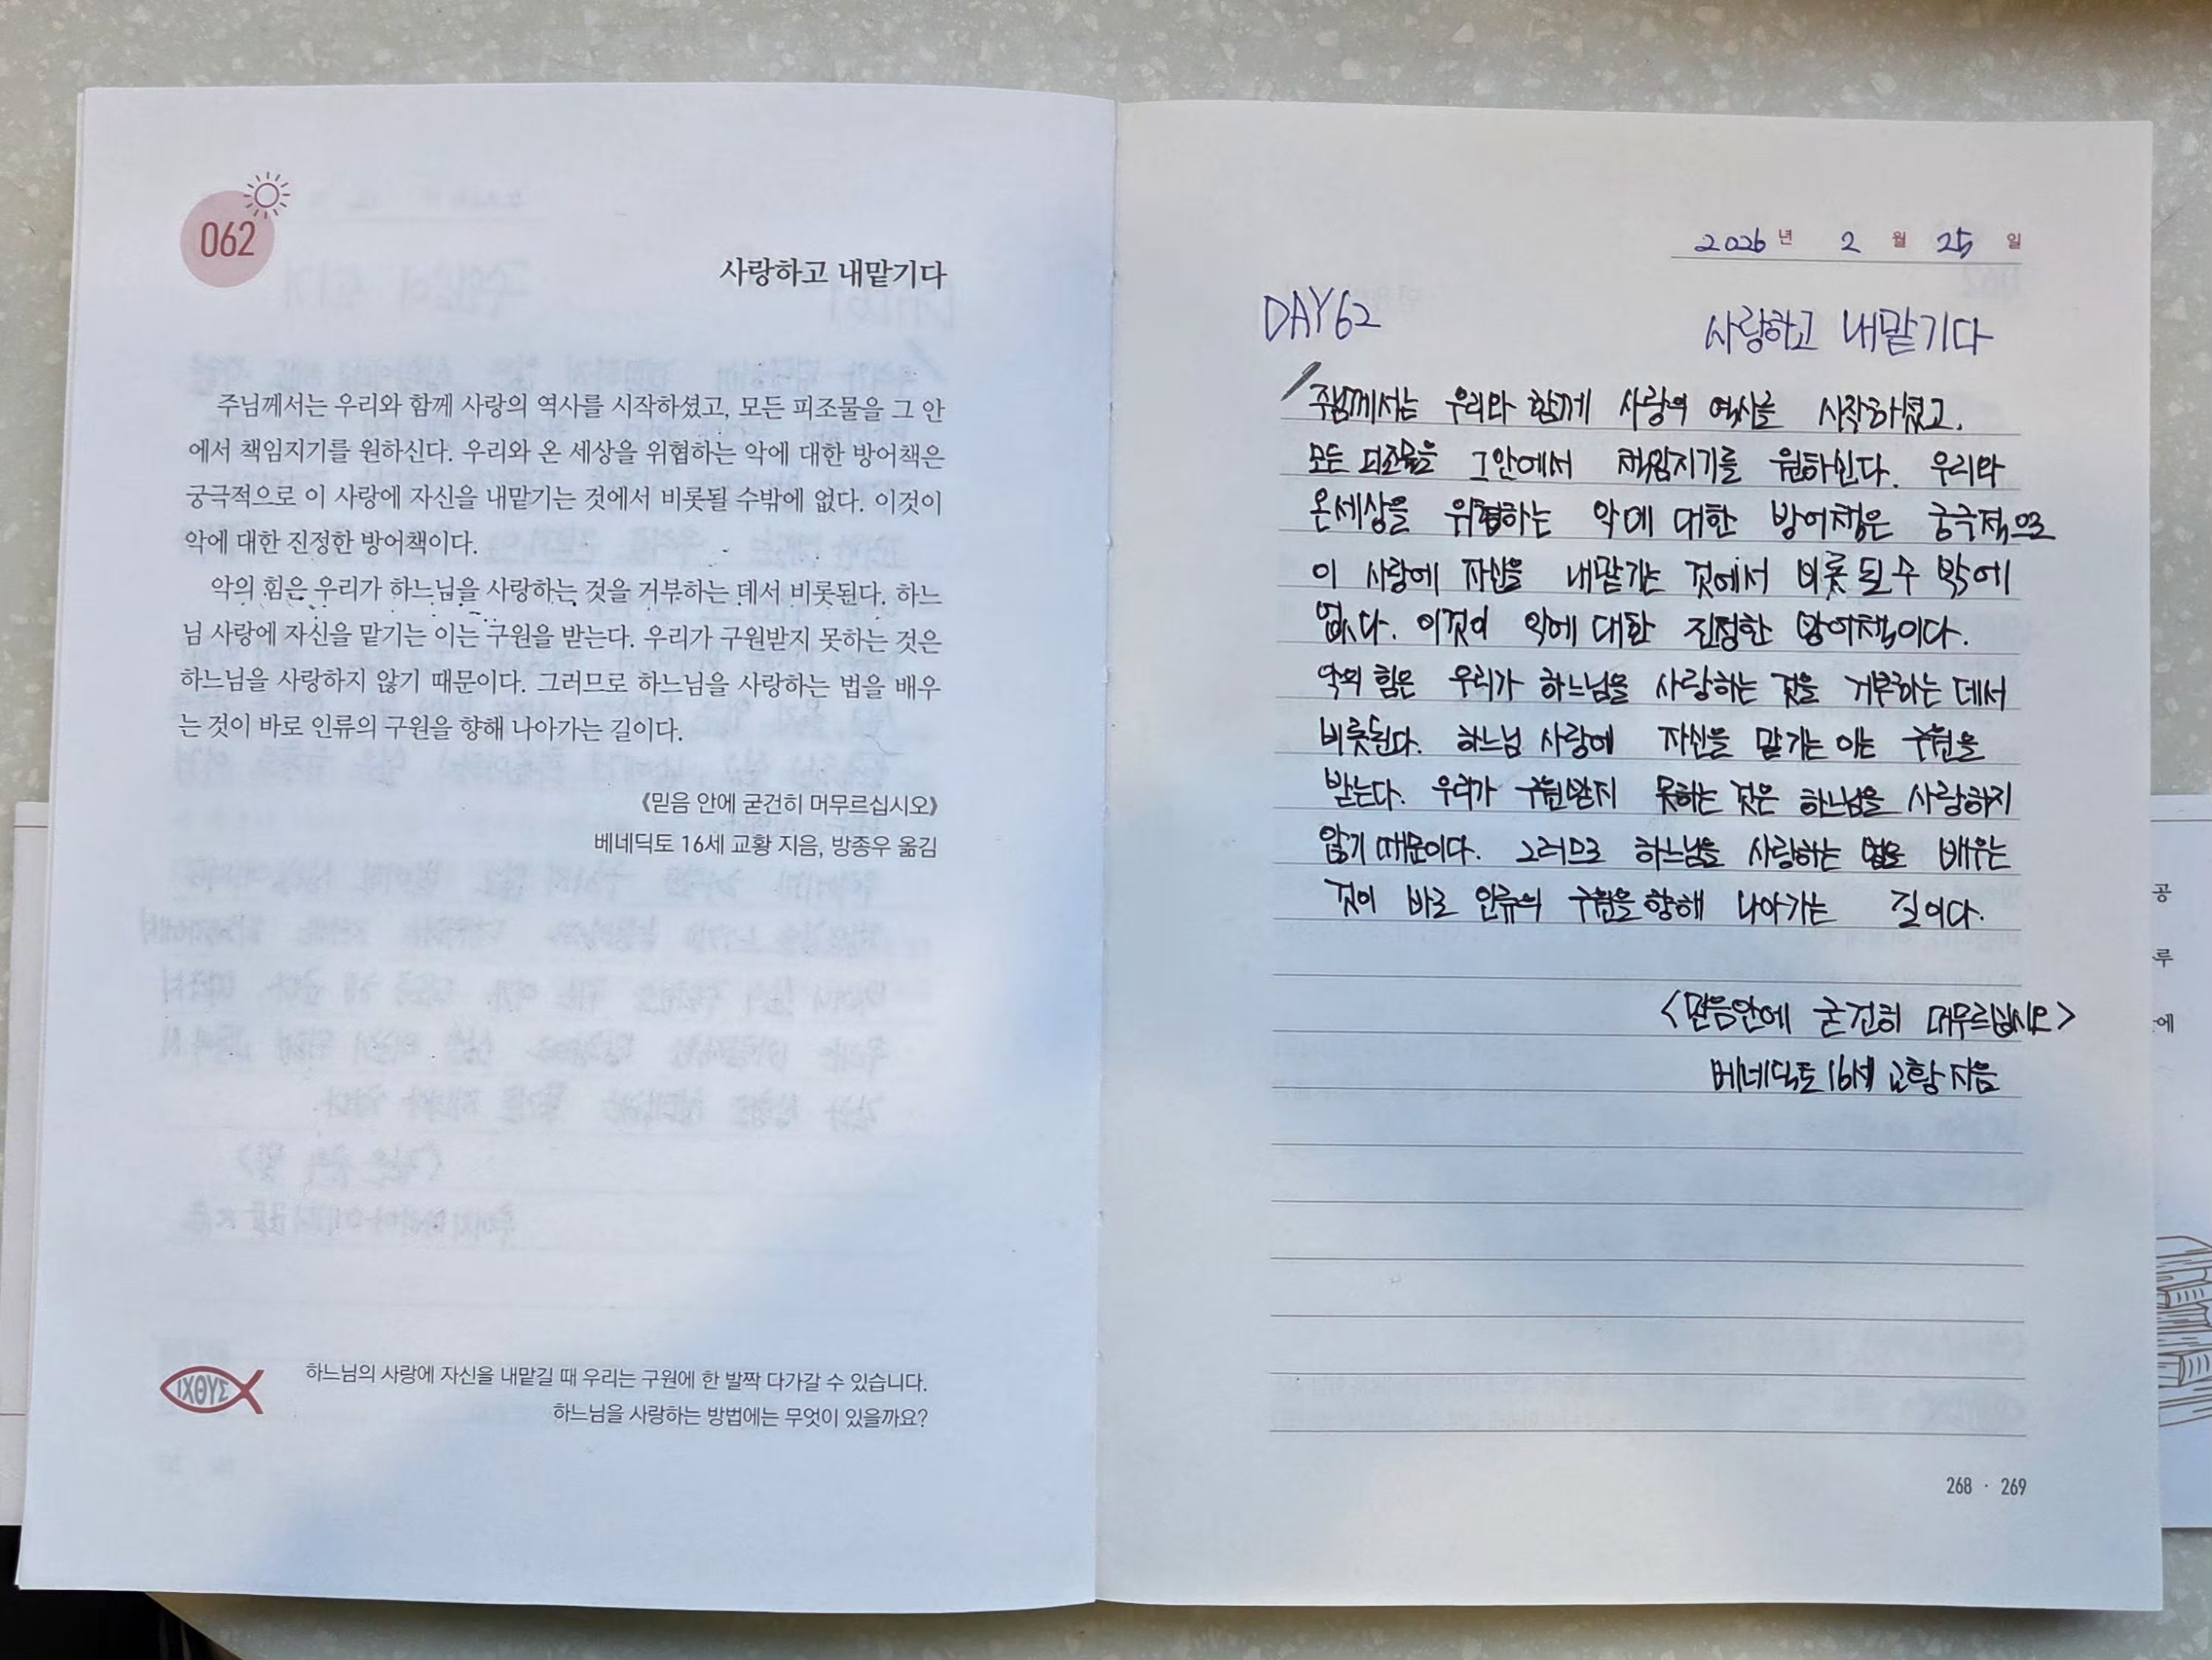 062
사랑하고 내맡기다
주님께서는 우리와 함께 사랑의 역사를 시작하셨고, 모든 피조물을 그 안
에서 책임지기를 원하신다. 우리와 온 세상을 위협하는 악에 대한 방어책은
궁극적으로 이 사랑에 자신을 내맡기는 것에서 비롯될 수밖에 없다. 이것이
악에 대한 진정한 방어책이다.
악의 힘은 우리가 하느님을 사랑하는 것을 거부하는 데서 비롯된다. 하느
님 사랑에 자신을 맡기는 이는 구원을 받는다. 우리가 구원받지 못하는 것은
하느님을 사랑하지 않기 때문이다. 그러므로 하느님을 사랑하는 법을 배우
는 것이 바로 인류의 구원을 향해 나아가는 길이다.
《믿음 안에 굳건히 머무르십시오》
베네딕토 16세 교황 지음, 방종우 옮김
ΙΧΘΥΣ
하느님의 사랑에 자신을 내맡길 때 우리는 구원에 한 발짝 다가갈 수 있습니다.
하느님을 사랑하는 방법에는 무엇이 있을까요?
2026년 2월 25일
DAY 62
사랑하고 내맡기다
주님께서는 우리와 함께 사랑의 역사를 시작하셨고,
모든 피조물을 그안에서 책임지기를 원하신다. 우리와
온세상을 위협하는 악에 대한 방어책은 궁극적으로
이 사랑에 자신을 내맡기는 것에서 비롯될 수 밖에
없다. 이것이 악에 대한 진정한 방어책이다.
악의 힘은 우리가 하느님을 사랑하는 것을 거부하는 데서
비롯된다. 하느님 사랑에 자신을 맡기는 이는 구원을
받는다. 우리가 구원받지 못하는 것은 하느님을 사랑하지
않기 때문이다. 그러므로 하느님을 사랑하는 법을 배우는
것이 바로 인류의 구원을 향해 나아가는 길이다.
<믿음안에 굳건히 머무르십시오>
베네딕토 16세 교황 지음
268 · 269
공
루
에